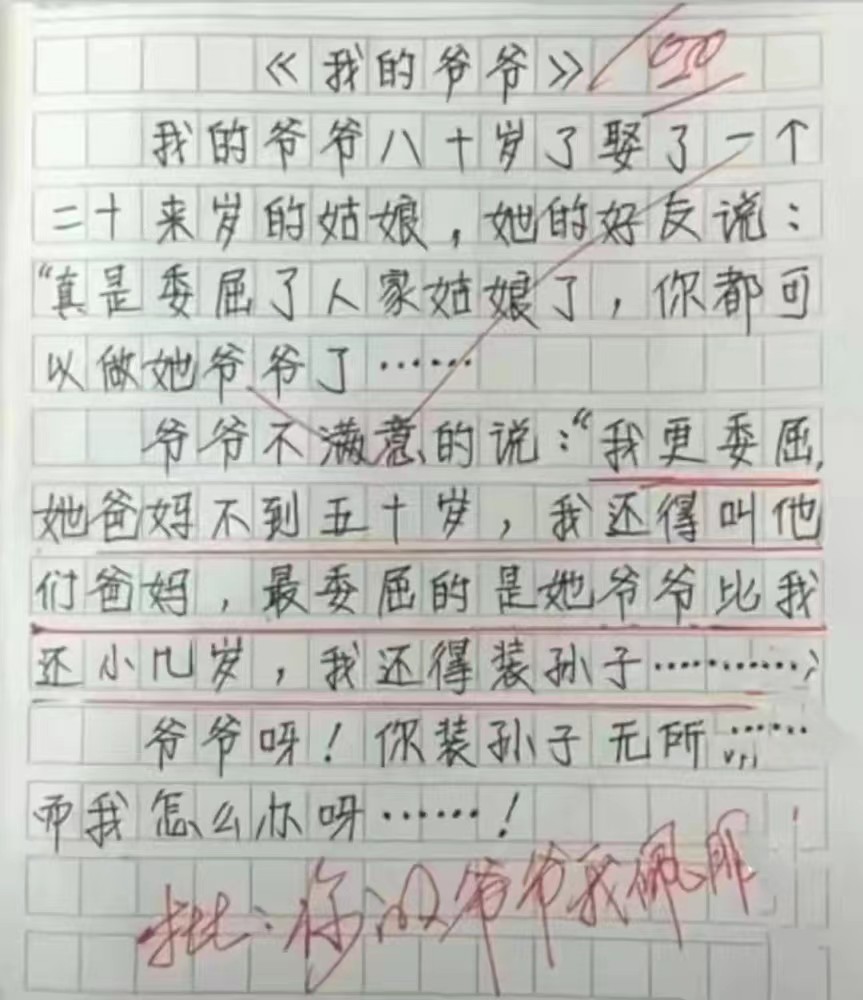 《我的爷爷》
我的爷爷八十岁了娶了一个
二十来岁的姑娘，她的好友说：
“真是委屈了人家姑娘了，你都可
以做她爷爷了……
爷爷不满意的说：“我更委屈，
她爸妈不到五十岁，我还得叫他
们爸妈，最委屈的是她爷爷比我
还小几岁，我还得装孙子…………
爷爷呀！你装孙子无所……
而我怎么办呀……！
批：你爷爷我佩服